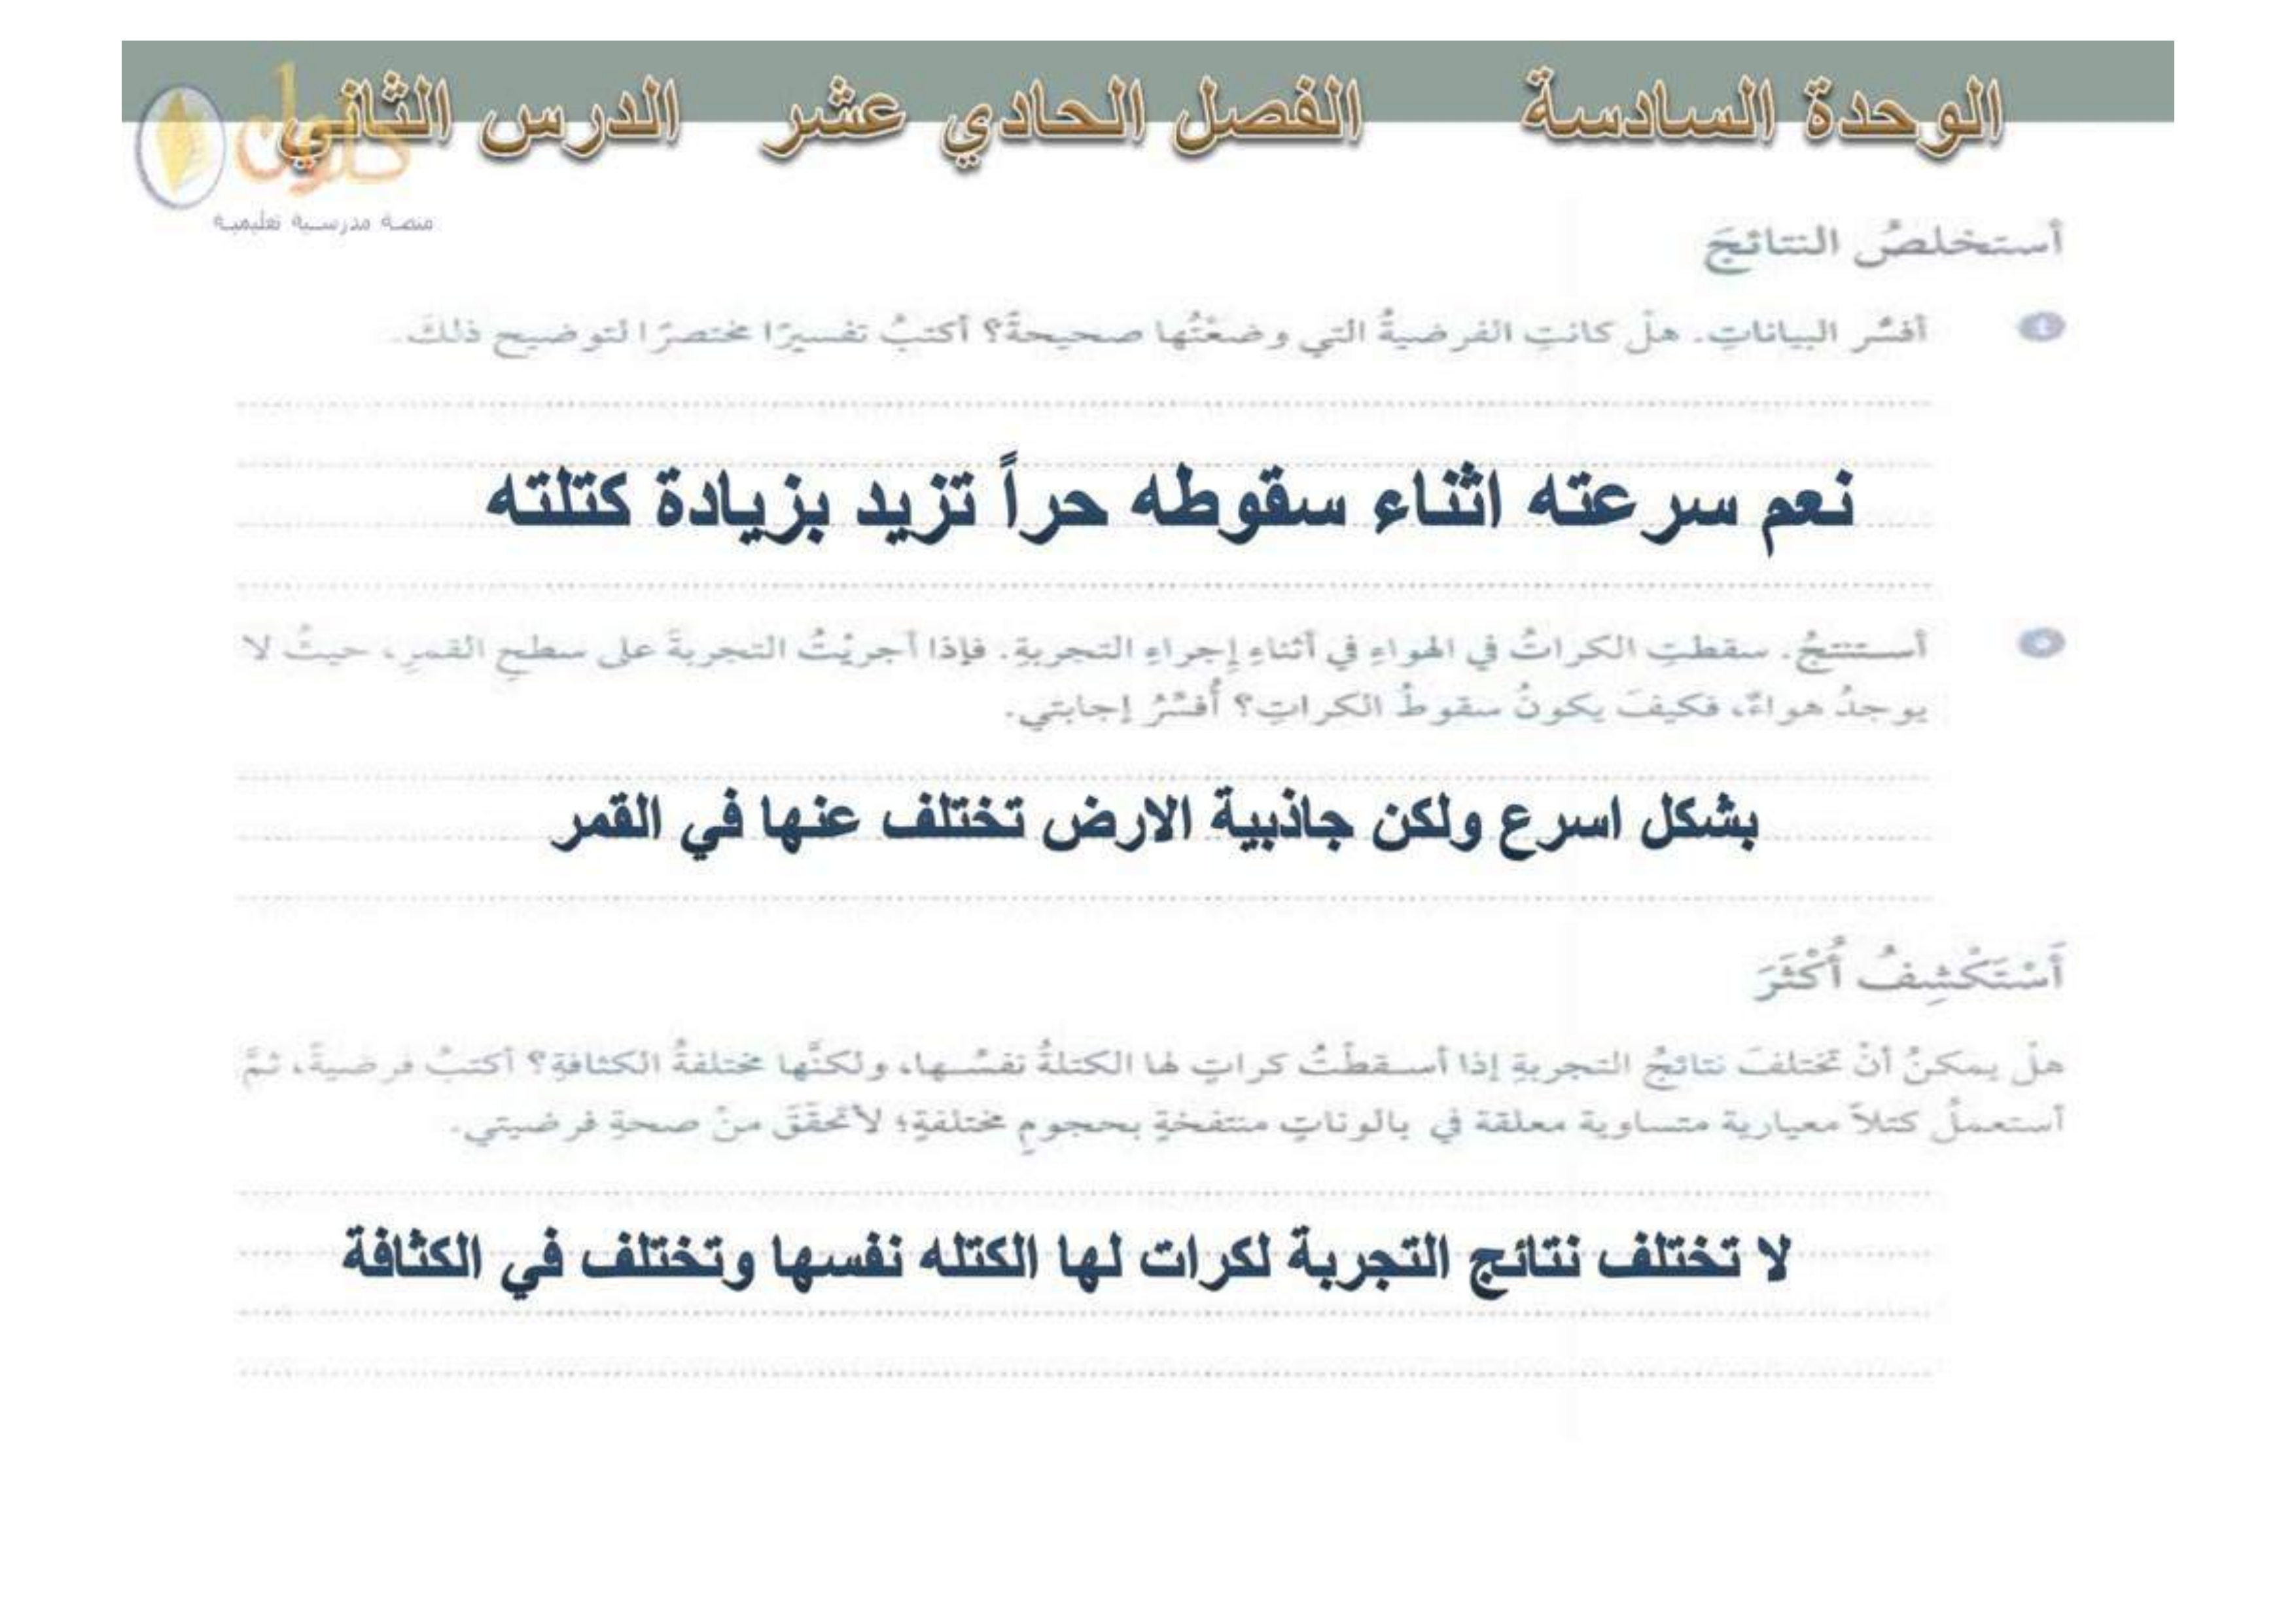 الوحدة السادسة الفصل الحادي عشر الدرس الثاني
حلول
منصة مدرسية تعليمية
أستخلصُ النتائجَ
٤ أفسِّر البياناتِ. هلْ كانتِ الفرضيةُ التي وضعْتُها صحيحةً؟ أكتبُ تفسيرًا مختصرًا لتوضيح ذلكَ.
نعم سرعته اثناء سقوطه حراً تزيد بزيادة كتلته
٥ أستنتجُ. سقطتِ الكراتُ في الهواءِ في أثناءِ إجراءِ التجربةِ. فإذا أجريْتُ التجربةَ على سطحِ القمرِ، حيثُ لا
يوجدُ هواءٌ، فكيفَ يكونُ سقوطُ الكراتِ؟ أُفسِّرُ إجابتي.
بشكل اسرع ولكن جاذبية الارض تختلف عنها في القمر
أَسْتَكْشِفُ أَكْثَرَ
هلْ يمكنُ أنْ تختلفَ نتائجُ التجربةِ إذا أسقطْتُ كراتٍ لها الكتلةُ نفسُها، ولكنَّها مختلفةُ الكثافةِ؟ أكتبُ فرضيةً، ثمَّ
أستعملُ كتلاً معيارية متساوية معلقة في بالوناتٍ منتفخةٍ بحجومٍ مختلفةٍ؛ لأتحقَّقَ منْ صحةِ فرضيتي.
لا تختلف نتائج التجربة لكرات لها الكتله نفسها وتختلف في الكثافة